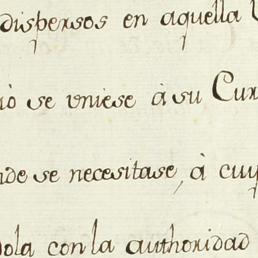 dispersos en aquella
se uniese à su Cur
nde se necesitase, à cuy
dola con la authoridad